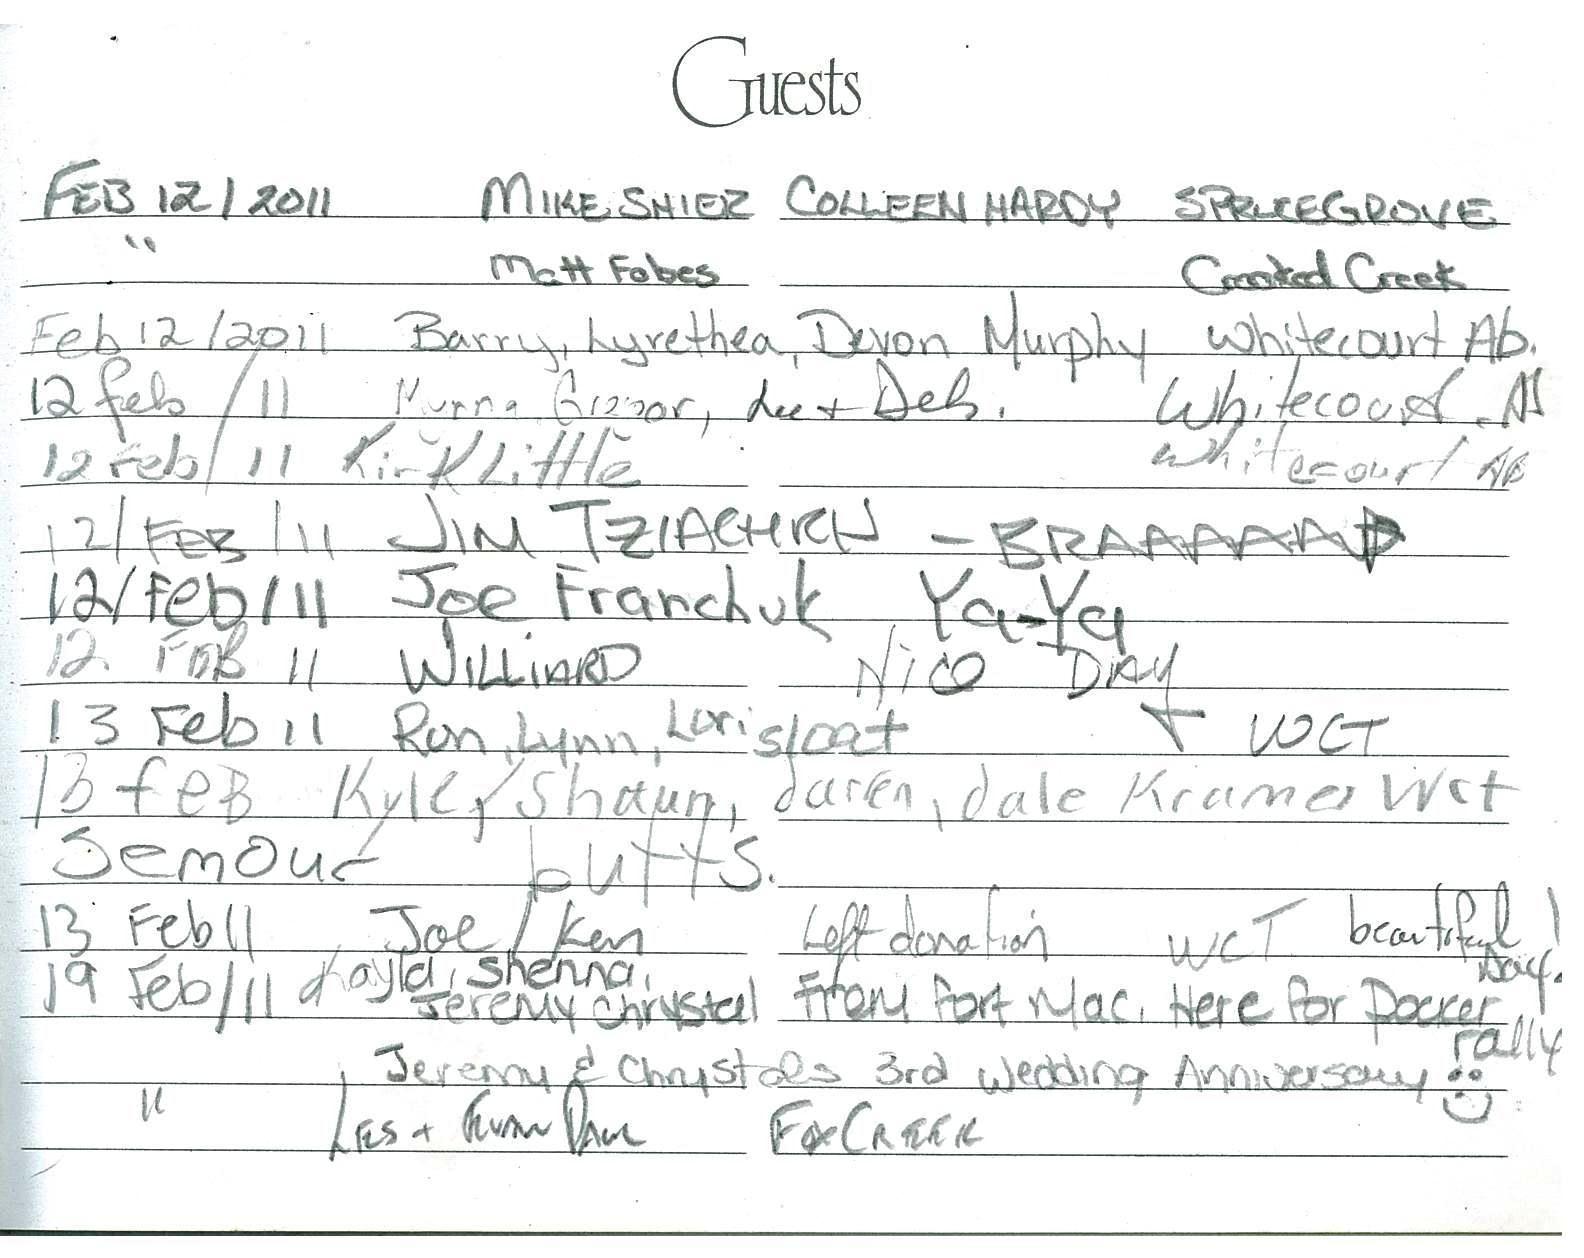 Guests
FEB 12/2011 MIKE SHIER COLLEEN HARDY SPRUCEGROVE
" Matt Fobes Crooked Creek
Feb 12/2011 Barry, Lyrethea, Devon Murphy Whitecourt Ab.
12 feb/11 Lee + Deb. Whitecourt
12 Feb/11 Kirk Little Whitecourt AB
12/FEB/11 JIM - BRAAAAAAP
12/Feb/11 Joe Franchuk Ya-Ya
12 FEB 11 WILLIARD NICO DAY
13 Feb 11 Ron, Lynn, Lori Sloat + WCT
13 feB Kyle, Shaun, daren, dale Kramer Wct
Semour butts.
13 Feb 11 Joe/Ken Left donation WCT beautiful Day!
19 Feb/11 Kayla, Shenna,
Jeremy Chrystal From Fort Mac. Here For Pocker rally
Jeremy & Chrystals 3rd Wedding Anniversary
" LES + FOXCREEK